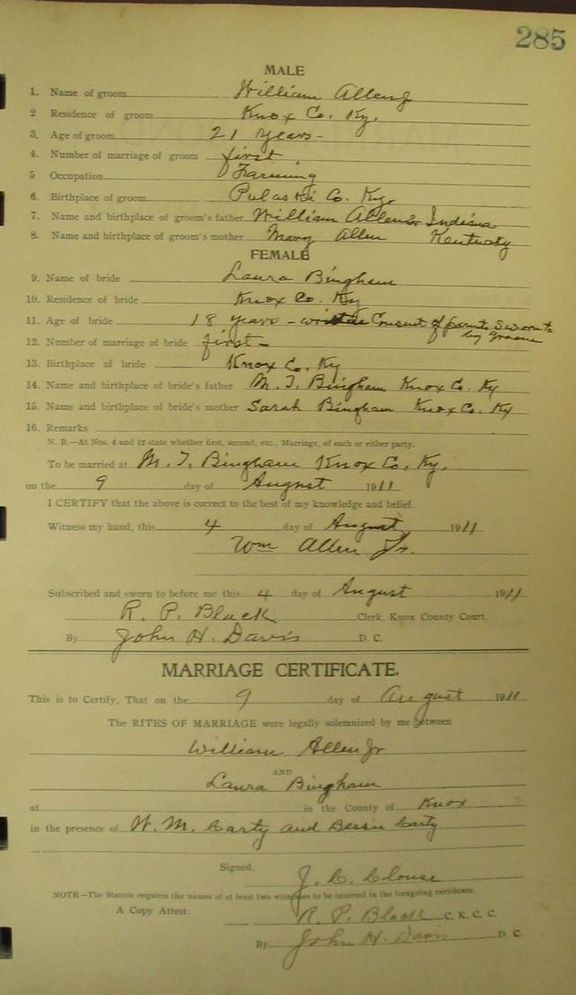 285
MALE
1. Name of groom William Allen Jr
2 Residence of groom Knox Co. Ky.
3. Age of groom 21 years -
4. Number of marriage of groom first
5 Occupation Farming
6. Birthplace of groom Pulaski Co. Ky.
7. Name and birthplace of groom's father William Allen Sr Indiana
8. Name and birthplace of groom's mother Mary Allen Kentucky
FEMALE
9. Name of bride Laura Bingham
10. Residence of bride Knox Co. Ky
11. Age of bride 18 years - written Consent of parents Sworn to
by Groom
12. Number of marriage of bride first -
13. Birthplace of bride Knox Co. Ky
14. Name and birthplace of bride's father M. T. Bingham Knox Co. Ky
15. Name and birthplace of bride's mother Sarah Bingham Knox Co. Ky
16. Remarks
N. B.—At Nos. 4 and 12 state whether first, second, etc., Marriage, of each or either party.
To be married at M. T. Bingham Knox Co. Ky.
on the 9 day of August 1911
I CERTIFY that the above is correct to the best of my knowledge and belief.
Witness my hand, this 4 day of August 1911
Wm Allen Jr.
Subscribed and sworn to before me this 4 day of August 1911
R. P. Black Clerk, Knox County Court.
By John H. Davis D. C.
MARRIAGE CERTIFICATE.
This is to Certify, That on the 9 day of August 1911
the RITES OF MARRIAGE were legally solemnized by me between
William Allen Jr
AND
Laura Bingham
at in the County of Knox
in the presence of W. M. Carty and Bessie Carty
Signed, J. C. Clouse
NOTE—The Statute requires the names of at least two witnesses to be inserted in the foregoing certificate.
A Copy Attest: R. P. Black C. K. C. C.
By John H. Davis D. C.